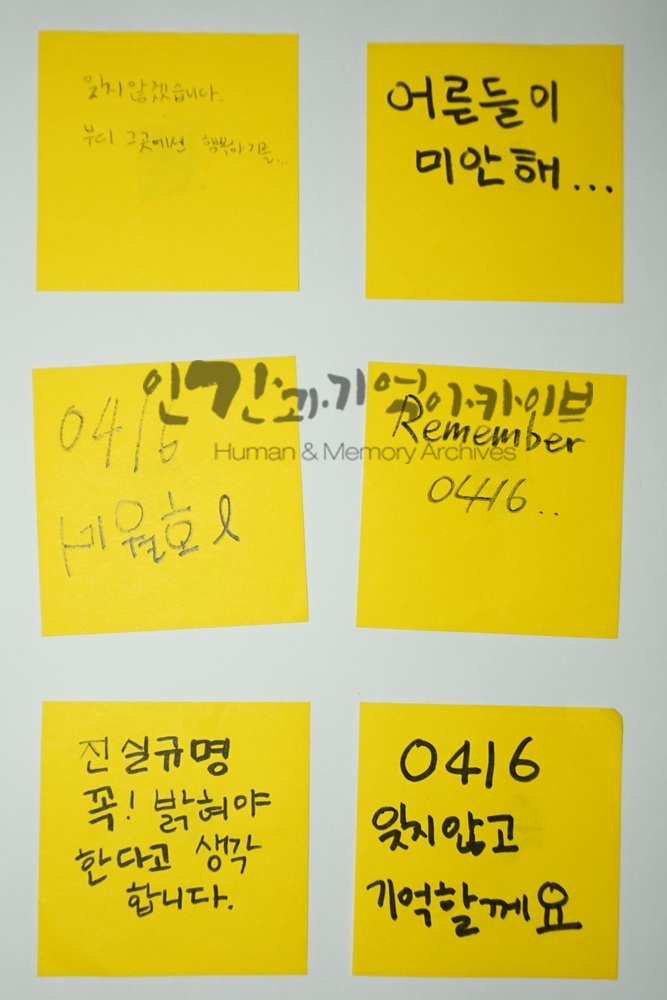 잊지 않겠습니다.
부디 그곳에선 행복하기를...
어른들이
미안해...
0416
세월호
인간과기억아카이브
Human & Memory Archives
Remember
0416..
진실규명
꼭! 밝혀야
한다고 생각
합니다.
0416
잊지않고
기억할께요